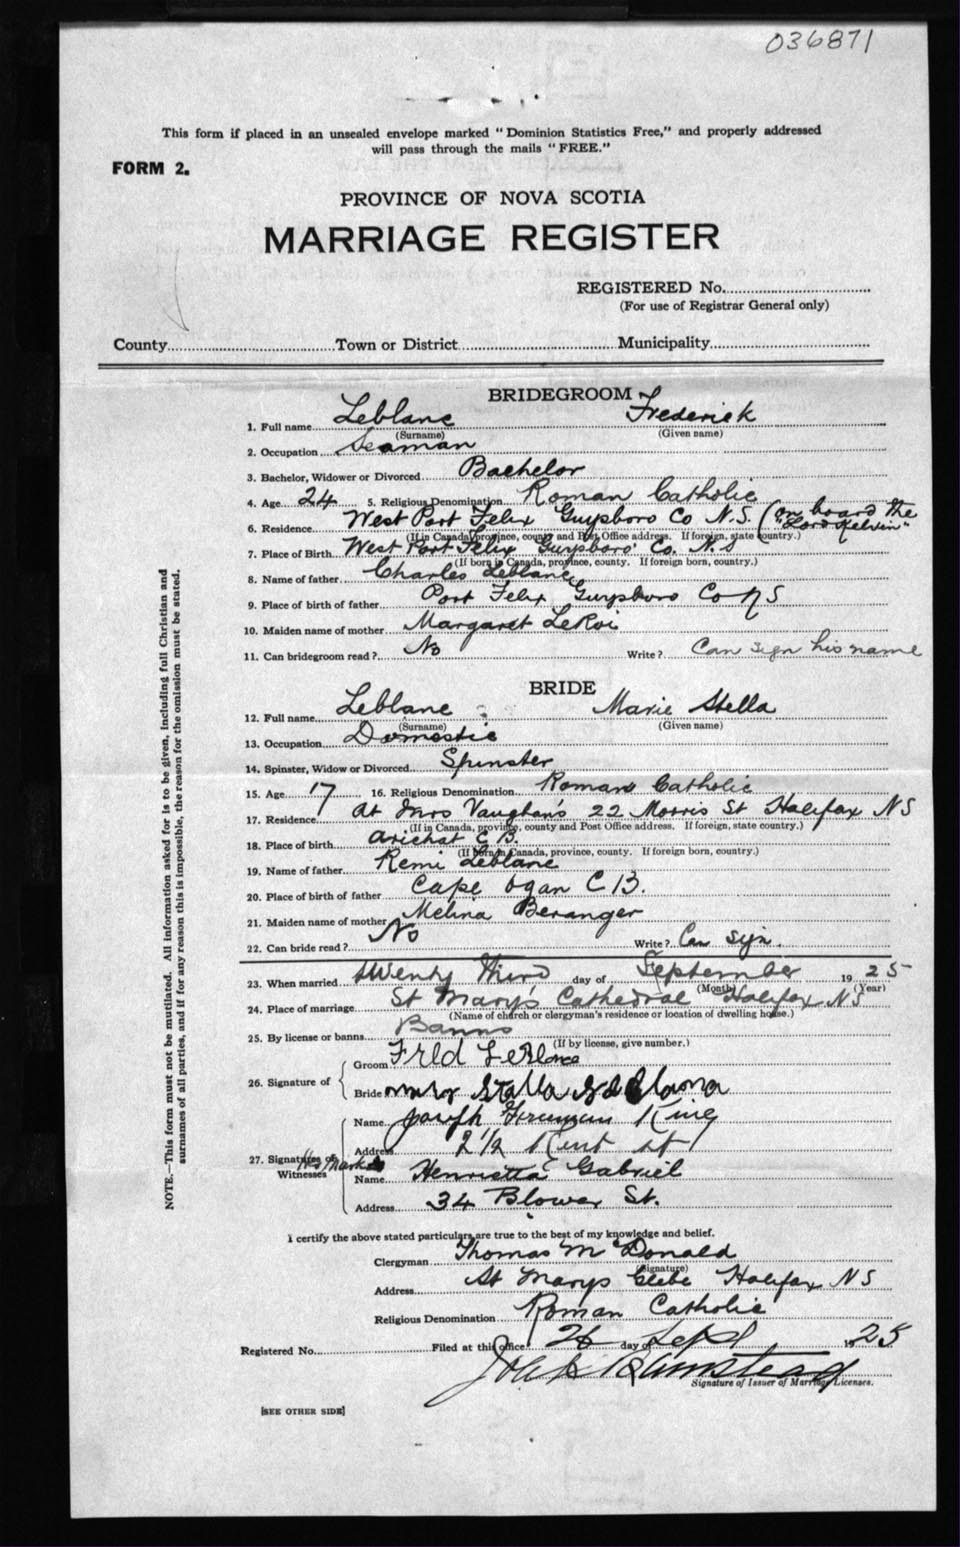 036871
This form if placed in an unsealed envelope marked "Dominion Statistics Free," and properly addressed
will pass through the mails "FREE."
FORM 2.
PROVINCE OF NOVA SCOTIA
MARRIAGE REGISTER
REGISTERED No.
(For use of Registrar General only)
County Town or District Municipality
BRIDEGROOM
1. Full name Leblanc Frederick
(Surname) (Given name)
2. Occupation Seaman
3. Bachelor, Widower or Divorced Bachelor
4. Age 24 5. Religious Denomination Roman Catholic
6. Residence West Port Felix Guysboro Co N.S. (on board the "Lord Kelvin"
(If in Canada, province, county and Post Office address. If foreign, state country.)
7. Place of Birth West Port Felix Guysboro Co. N.S
(If born in Canada, province, county. If foreign born, country.)
8. Name of father Charles Leblanc
9. Place of birth of father Port Felix Guysboro Co N S
10. Maiden name of mother Margaret LeRoi
11. Can bridegroom read? No Write? Can sign his name
BRIDE
12. Full name Leblanc Marie Stella
(Surname) (Given name)
13. Occupation Domestic
14. Spinster, Widow or Divorced Spinster
15. Age 17 16. Religious Denomination Roman Catholic
17. Residence At Mrs Vaughan's 22 Morris St Halifax NS
(If in Canada, province, county and Post Office address. If foreign, state country.)
18. Place of birth Arichat C B.
(If born in Canada, province, county. If foreign born, country.)
19. Name of father Remi Leblanc
20. Place of birth of father Cape ogan C B.
21. Maiden name of mother Melina Beranger
22. Can bride read? No Write? Can sign.
23. When married twenty third day of September 1925
(Month) (Year)
24. Place of marriage St Mary's Cathedral Halifax NS
(Name of church or clergyman's residence or location of dwelling house.)
25. By license or banns Banns
(If by license, give number.)
26. Signature of Groom Fred LeBlanc
Bride Stella
27. Signatures of Witnesses his mark
Name Joseph King
Address 2 1/2 Kent St
Name Henrietta Gabriel
Address 34 Blower St.
I certify the above stated particulars are true to the best of my knowledge and belief.
Clergyman Thomas McDonald
(Signature)
Address St Marys Glebe Halifax NS
Religious Denomination Roman Catholic
Registered No. Filed at this office 26 day of Sept 1925
Signature of Issuer of Marriage Licenses.
[SEE OTHER SIDE]
NOTE.—This form must not be mutilated. All information asked for is to be given, including full Christian and
surnames of all parties, and if for any reason this is impossible, the reason for the omission must be stated.